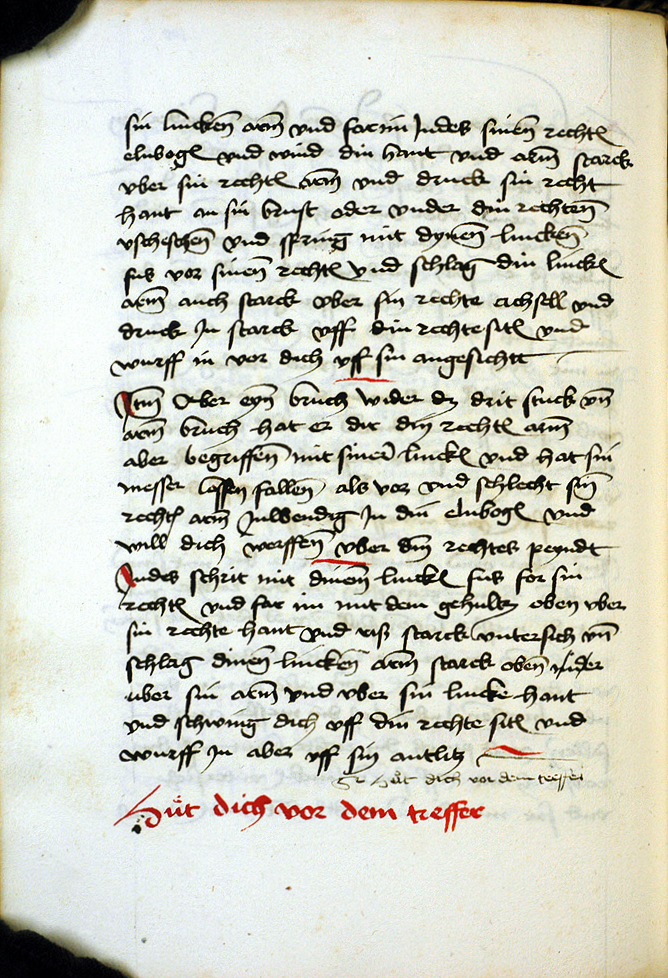 sin lincken arm vnd far im Indes sinen rechtẽ
elnbogẽ vnd wind din hant vnd arm starck
vber sin rechtẽ arm vnd druck sin recht
hant an sin brust oder vnder din rechten
vschschen vnd spring mit dynen lincken
fus vor sinen rechtẽ vnd schlag din linckẽ
arm auch starck vber sin rechte achsell vnd
druck In starck vff din rechte sitẽ vnd
wurff in vor dich vff sin angesichtt
Itm̃ Aber eyn bruch wider dz drit stuck vñ
arm bruch hat er dir din rechtẽ arm
aber begriffen mit siner linckẽ vnd hat sin
messer lassen fallen als vor vnd schlecht sin
rechtẽ arm Inwendig In din elnbogẽ vnd
will dich werffen vber sin rechtes peyndt
Indes schrit mit dinen linckẽ fus for sin
rechtẽ vnd far im mit dem gehultz oben vber
sin rechte hant vnd riß starck vntersich vñ
schlag dinen lincken arm starck oben nider
uber sin arm vnd vber sin lincke hant
vnd schwing dich vff din rechte sitẽ vnd
wurff In aber vff sin antlitz
hůt dich vor dem treffer
Hůt dich vor dem treffer